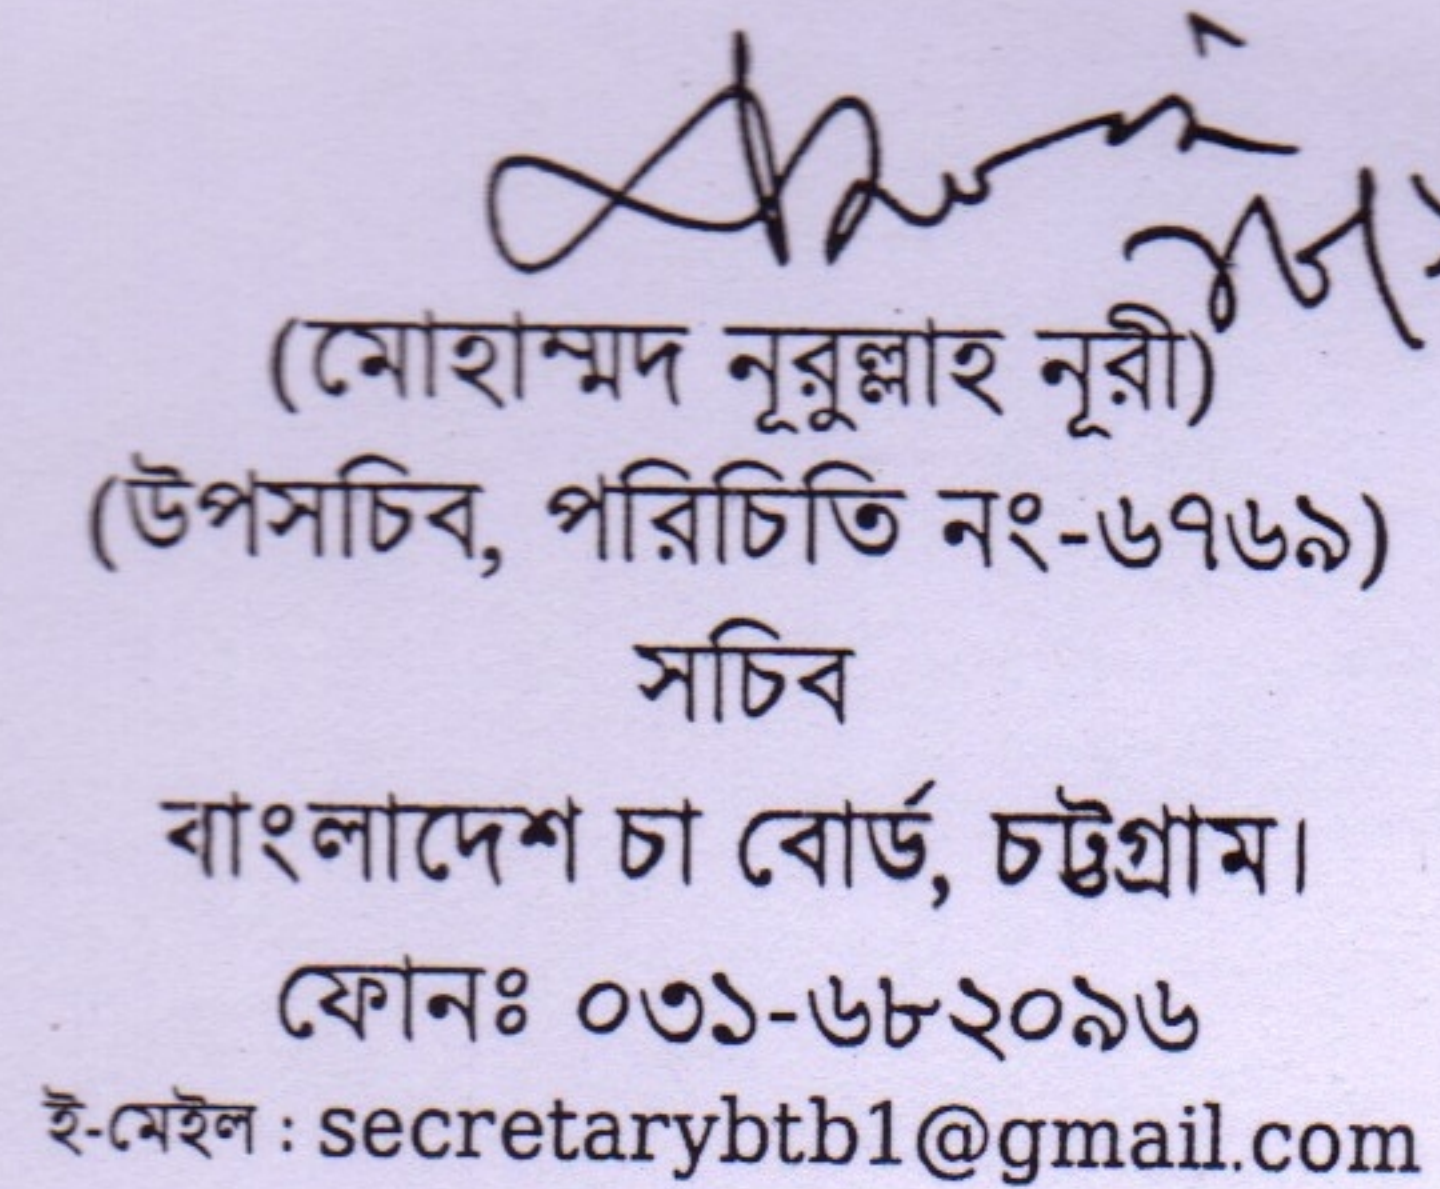 (মোহাম্মদ নূরুল্লাহ নূরী)
(উপসচিব, পরিচিতি নং-৬৭৬৯)
সচিব
বাংলাদেশ চা বোর্ড, চট্টগ্রাম।
ফোনঃ ০৩১-৬৮২০৯৬
ই-মেইল : secretarybtb1@gmail.com